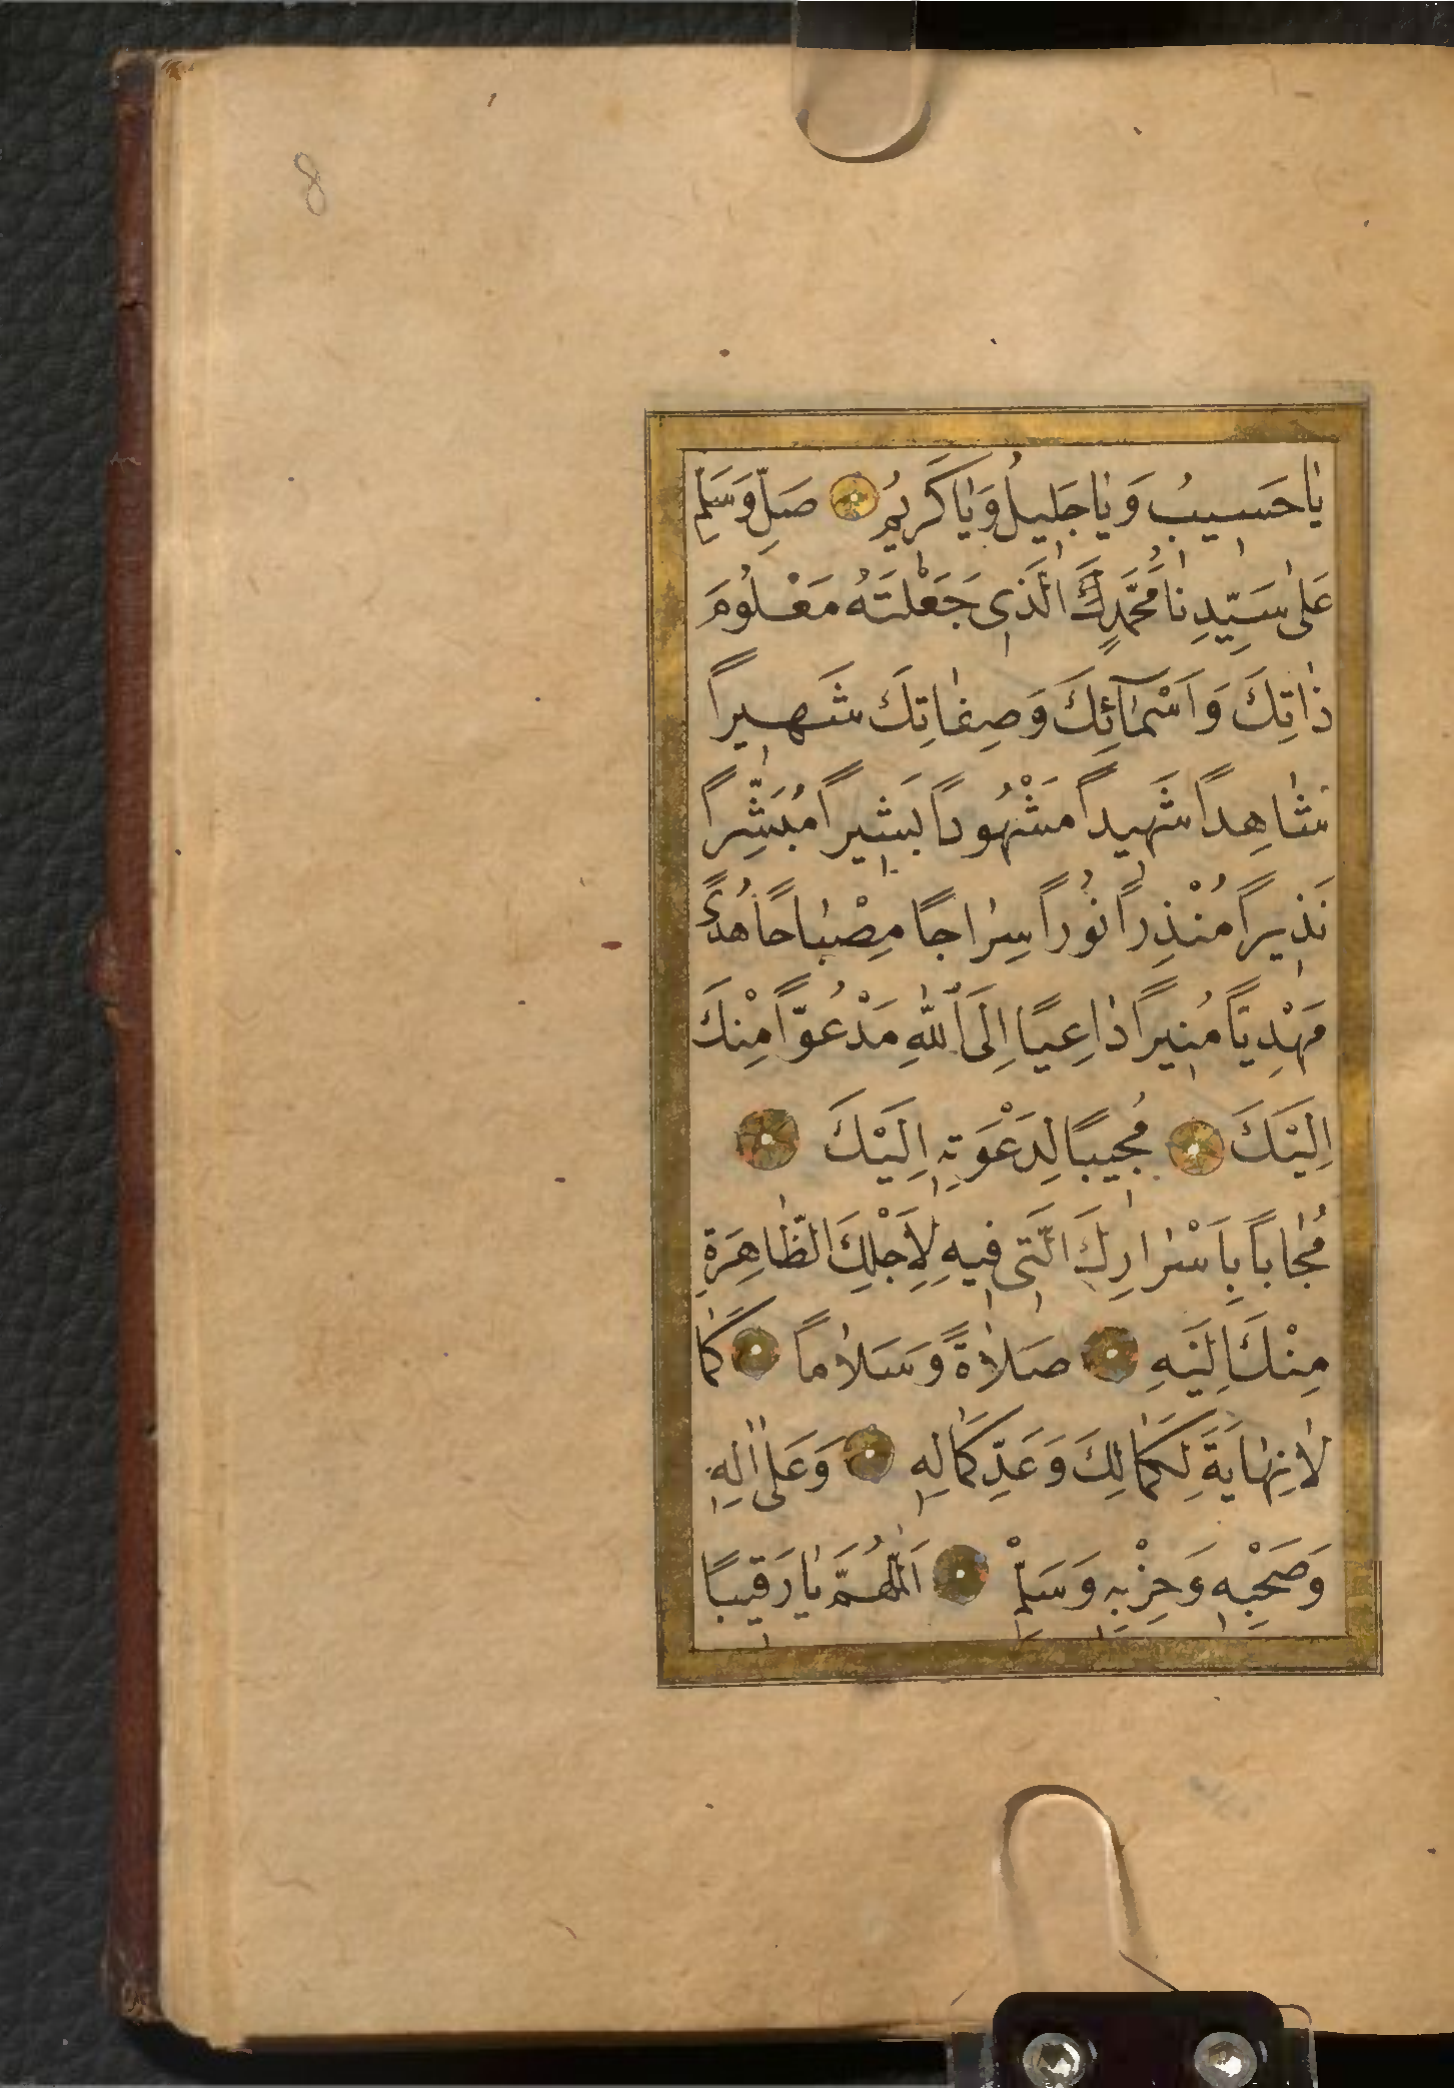 8
يَا حَسِيبُ وَيَا جَلِيلُ وَيَا كَرِيمُ صَلِّ وَسَلِّمْ
عَلٰى سَيِّدِنَا مُحَمَّدٍ الَّذِى جَعَلْتَهُ مَعْلُومَ
ذَاتِكَ وَاَسْمَآئِكَ وَصِفَاتِكَ شَهِيراً
شَاهِداً شَهِيداً مَشْهُوداً بَشِيراً مُبَشِّراً
نَذِيراً مُنْذِراً نُوراً سِرَاجاً مِصْبَاحاً هُدًى
مَهْدِيّاً مُنِيراً دَاعِيًا اِلَى اللّٰهِ مَدْعُوّاً مِنْكَ
اِلَيْكَ مُجِيبًا لِدَعْوَتِهِ اِلَيْكَ
مُجَاباً بِاَسْرَارِكَ الَّتِى فِيهِ لِاَجْلِكَ الظَّاهِرَةِ
مِنْكَ اِلَيْهِ صَلَاةً وَسَلَاماً كَمَا
لَا نِهَايَةَ لِكَمَالِكَ وَعَدِّ كَمَالِهِ وَعَلٰى اٰلِهِ
وَصَحْبِهِ وَحِزْبِهِ وَسَلِّمْ اَللّٰهُمَّ يَا رَقِيبًا